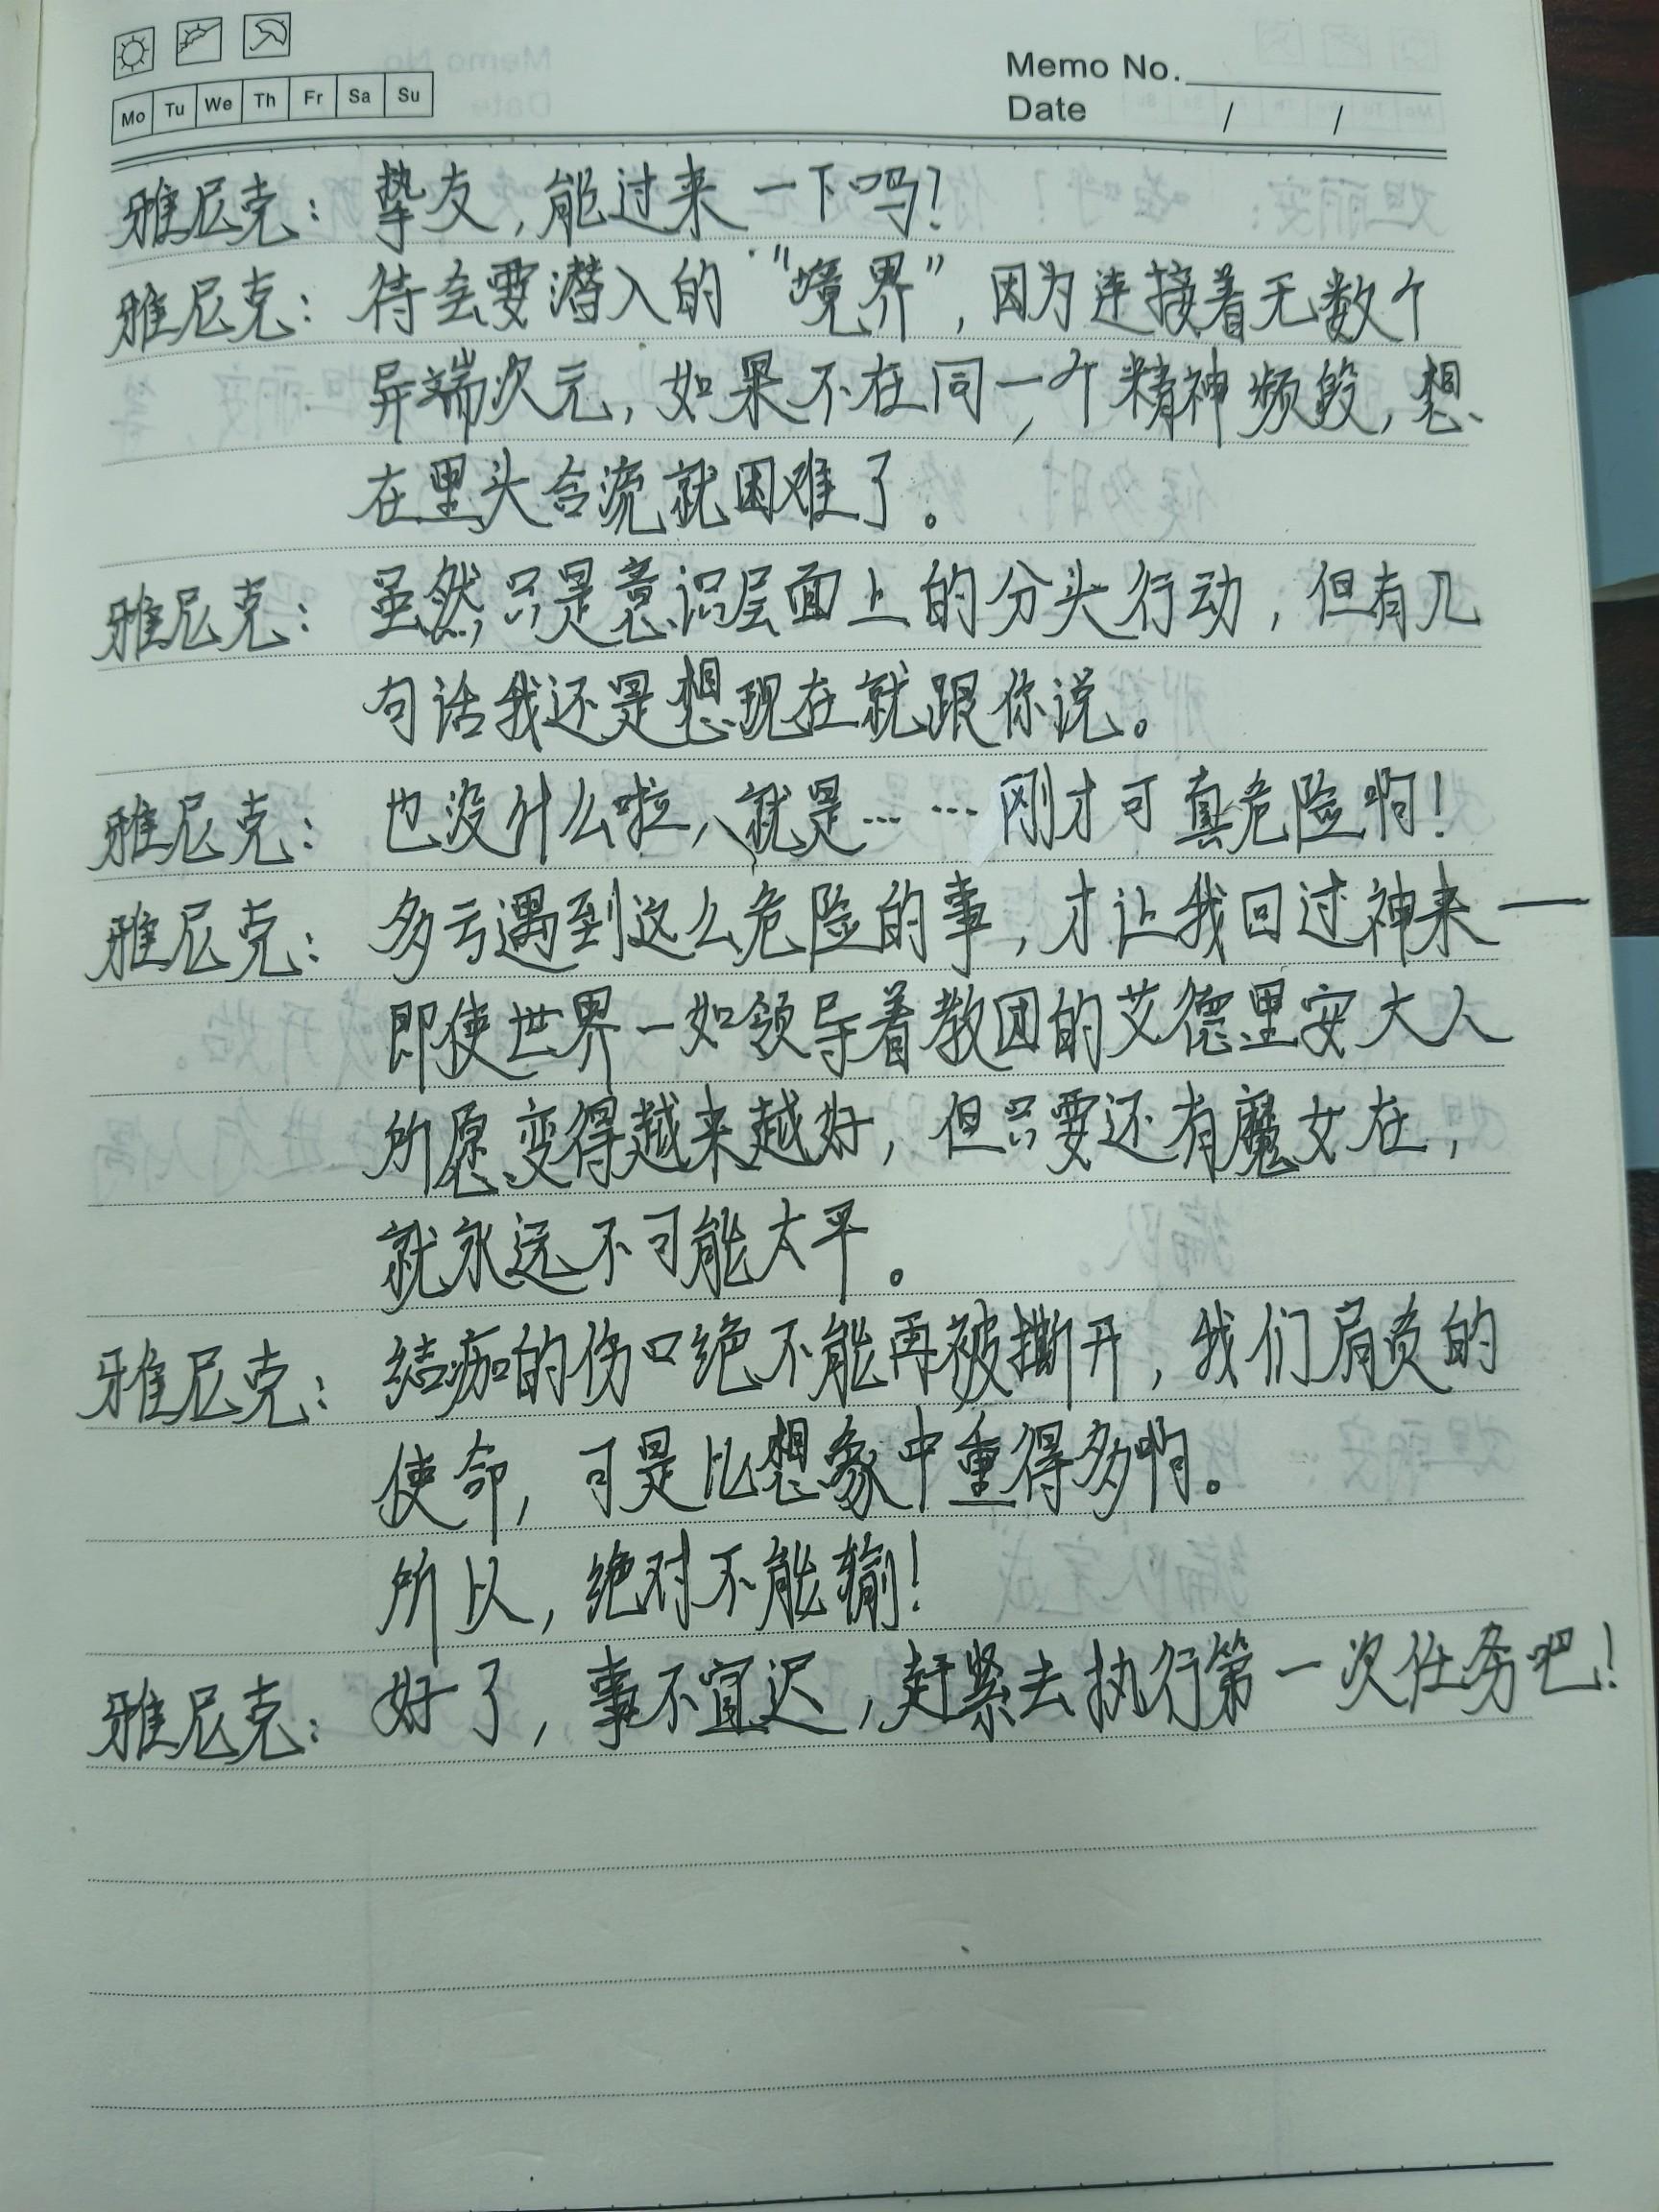 Mo Tu We Th Fr Sa Su
Memo No.
Date / /
雅尼克：挚友，能过来一下吗？
雅尼克：待会要潜入的“境界”，因为连接着无数个
异端次元，如果不在同一个精神频段，想
在里头合流就困难了。
雅尼克：虽然只是意识层面上的分头行动，但有几
句话我还是想现在就跟你说。
雅尼克：也没什么啦，就是……刚才可真危险啊！
雅尼克：多亏遇到这么危险的事，才让我回过神来——
即使世界一如领导着教团的艾德里安大人
所愿变得越来越好，但只要还有魔女在，
就永远不可能太平。
雅尼克：结痂的伤口绝不能再被撕开，我们肩负的
使命，可是比想象中重得多啊。
所以，绝对不能输！
雅尼克：好了，事不宜迟，赶紧去执行第一次任务吧！